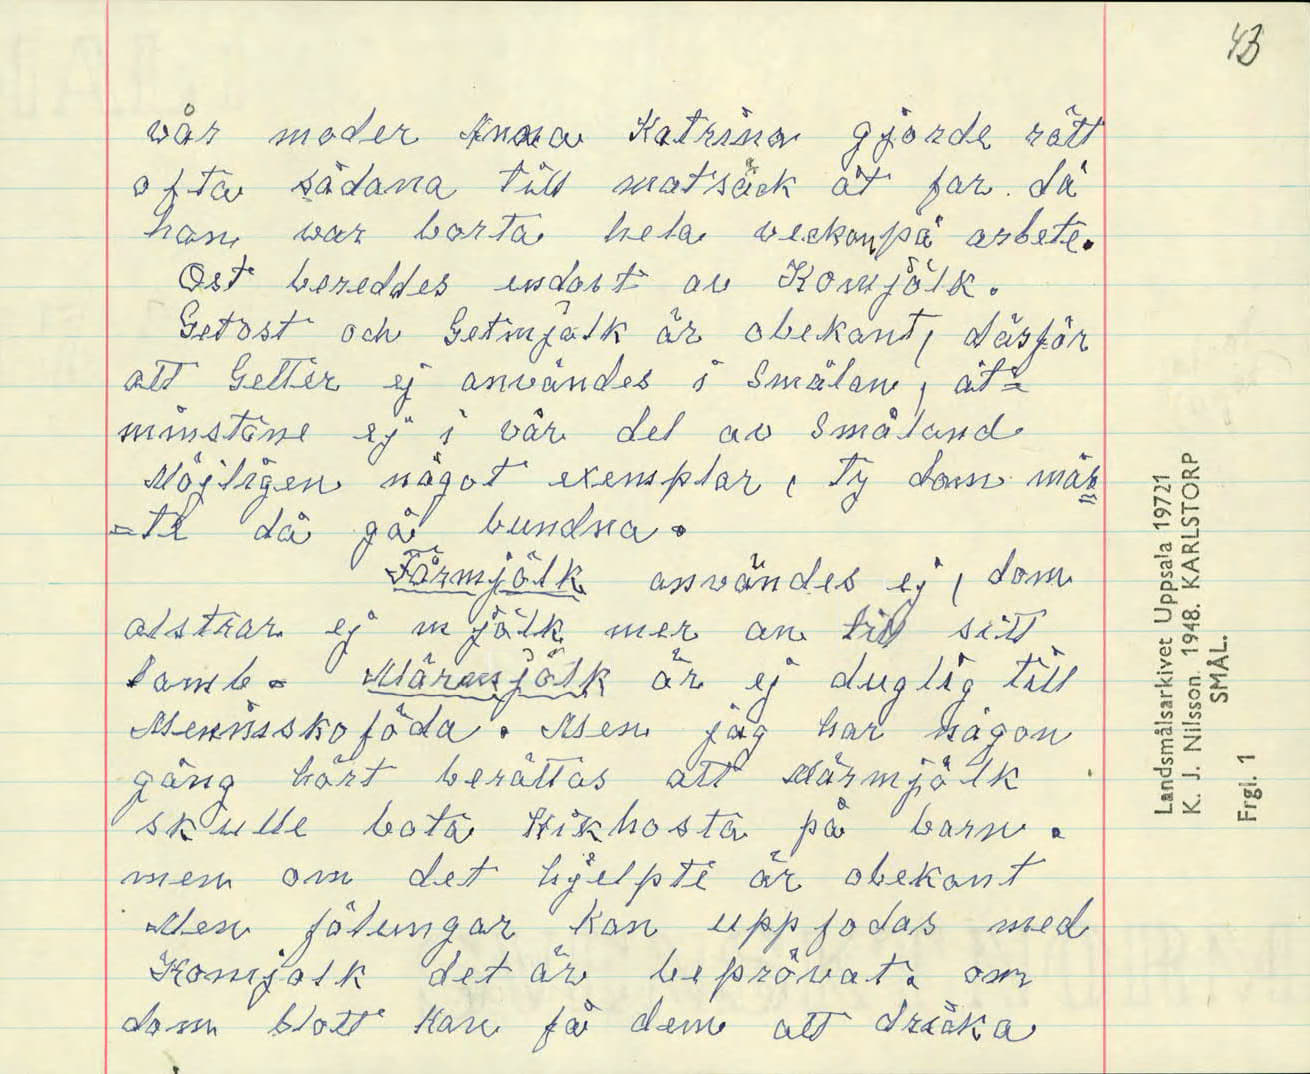 43
vår moder Anna Katrina gjorde rätt
ofta sådana till matsäck åt far då
han var borta hela veckan på arbete.
Ost bereddes endast av Komjölk.
Getost och Getmjölk är obekant, därför
att Getter ej användes i Smålan, åt=
minstone ej i vår del av Småland
Möjligen något exemplar, ty dom mås
=te då gå bundna.
Fårmjölk användes ej, dom
alstrar ej mjölk mer än till sitt
lamb. Märmjölk är ej duglig till
Menniskoföda. Men jag har någon
gång hört berättas att Märmjölk
skulle bota Kikhosta på barn.
men om det hjelpte är obekant
Men fölungar kan uppfodas med
Komjolk det är beprövat. om
dom blott kan få dem att dricka
Landsmålsarkivet Uppsala 19721
K. J. Nilsson. 1948. KARLSTORP
SMÅL.
Frgl. 1